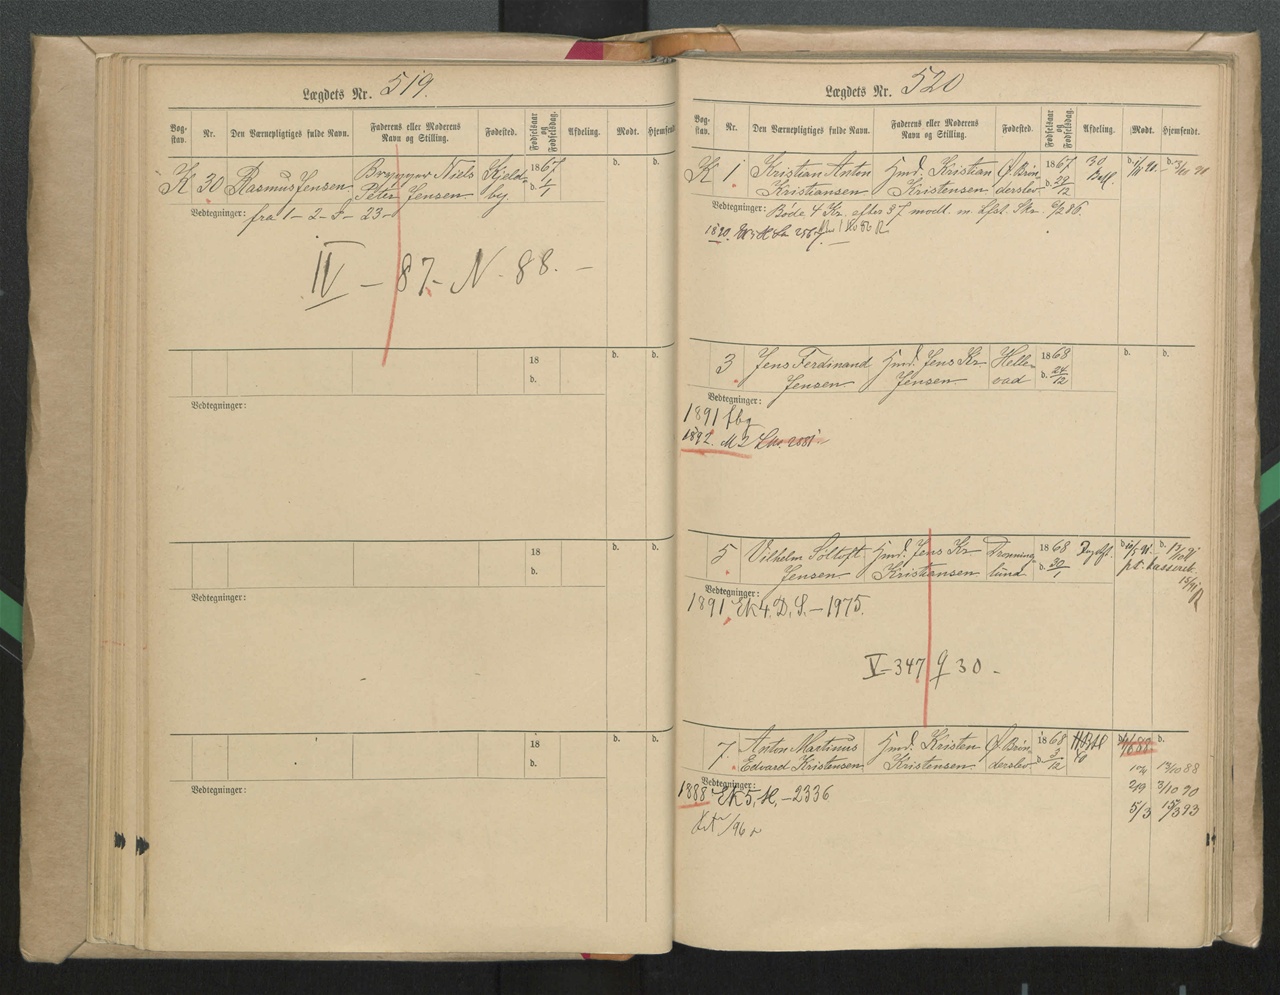 Lægdets Nr. 519.
Bog-
stav.
Nr.
Den Værnepligtiges fulde Navn.
Faderens eller Moderens
Navn og Stilling.
Fødested.
Fødselsaar
og
Fødselsdag.
Afdeling.
Mødt.
Hjemsendt
K 30 Rasmus Jensen
Brygger Niels
Peter Jensen
Kjeld-
by.
1867
d. 1/1
d.
d.
Vedtegninger: fra 1-2-F-23-
IV - 87.- N. 88. -
18
d.
d.
d.
Vedtegninger:
18
d.
d.
d.
Vedtegninger:
18
d.
d.
d.
Vedtegninger:
Lægdets Nr. 520
Bog-
stav.
Nr.
Den Værnepligtiges fulde Navn.
Faderens eller Moderens
Navn og Stilling.
Fødested.
Fødselsaar
og
Fødselsdag.
Afdeling.
Mødt.
Hjemsendt.
K 1 Kristian Anton
Kristiansen
Hmd. Kristian
Kristensen
Ø. Brøn-
derslev
1867
d. 29/12
30
Batl.
Vedtegninger: Bøde 4 Kr. efter 37 modt. m. Hfst. Skr. 6/2 86.
1890.
3 Jens Ferdinand
Jensen
Hmd. Jens Kr.
Jensen
Helle-
vad
1868
d. 24/12
d.
d.
Vedtegninger:
1891 fbg
1892. M 2
5 Vilhelm Soltoft
Jensen
Hmd. Jens Kr.
Kristiansen
Dronning-
lund
1868
d. 30/1
Vedtegninger:
1891 Ek 4. D. S. - 1975.
V-347 9 30 -
7 Anton Martinus
Edvard Kristensen
Hmd. Kristen
Kristensen
Ø. Brøn-
derslev
1868
d. 3/12
d.
13/10 88
3/10 90
5/3 15/3 93
Vedtegninger:
1888 Ek 5, H. - 2336